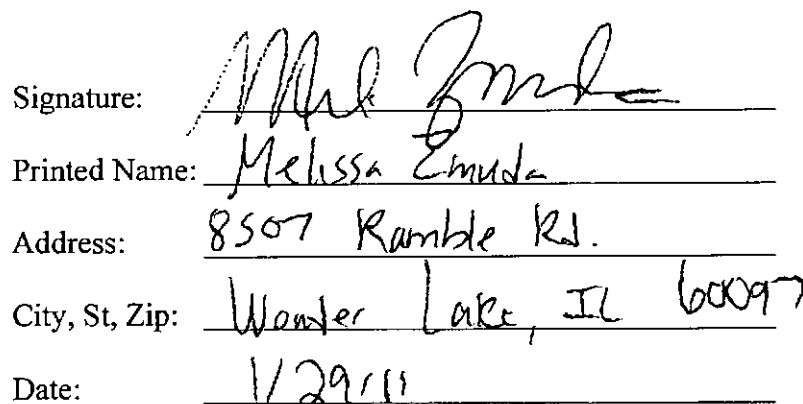 Signature: Mel Zmuda
Printed Name: Melissa Zmuda
Address: 8507 Ramble Rd.
City, St, Zip: Wonder Lake, IL 60097
Date: 1/29/11